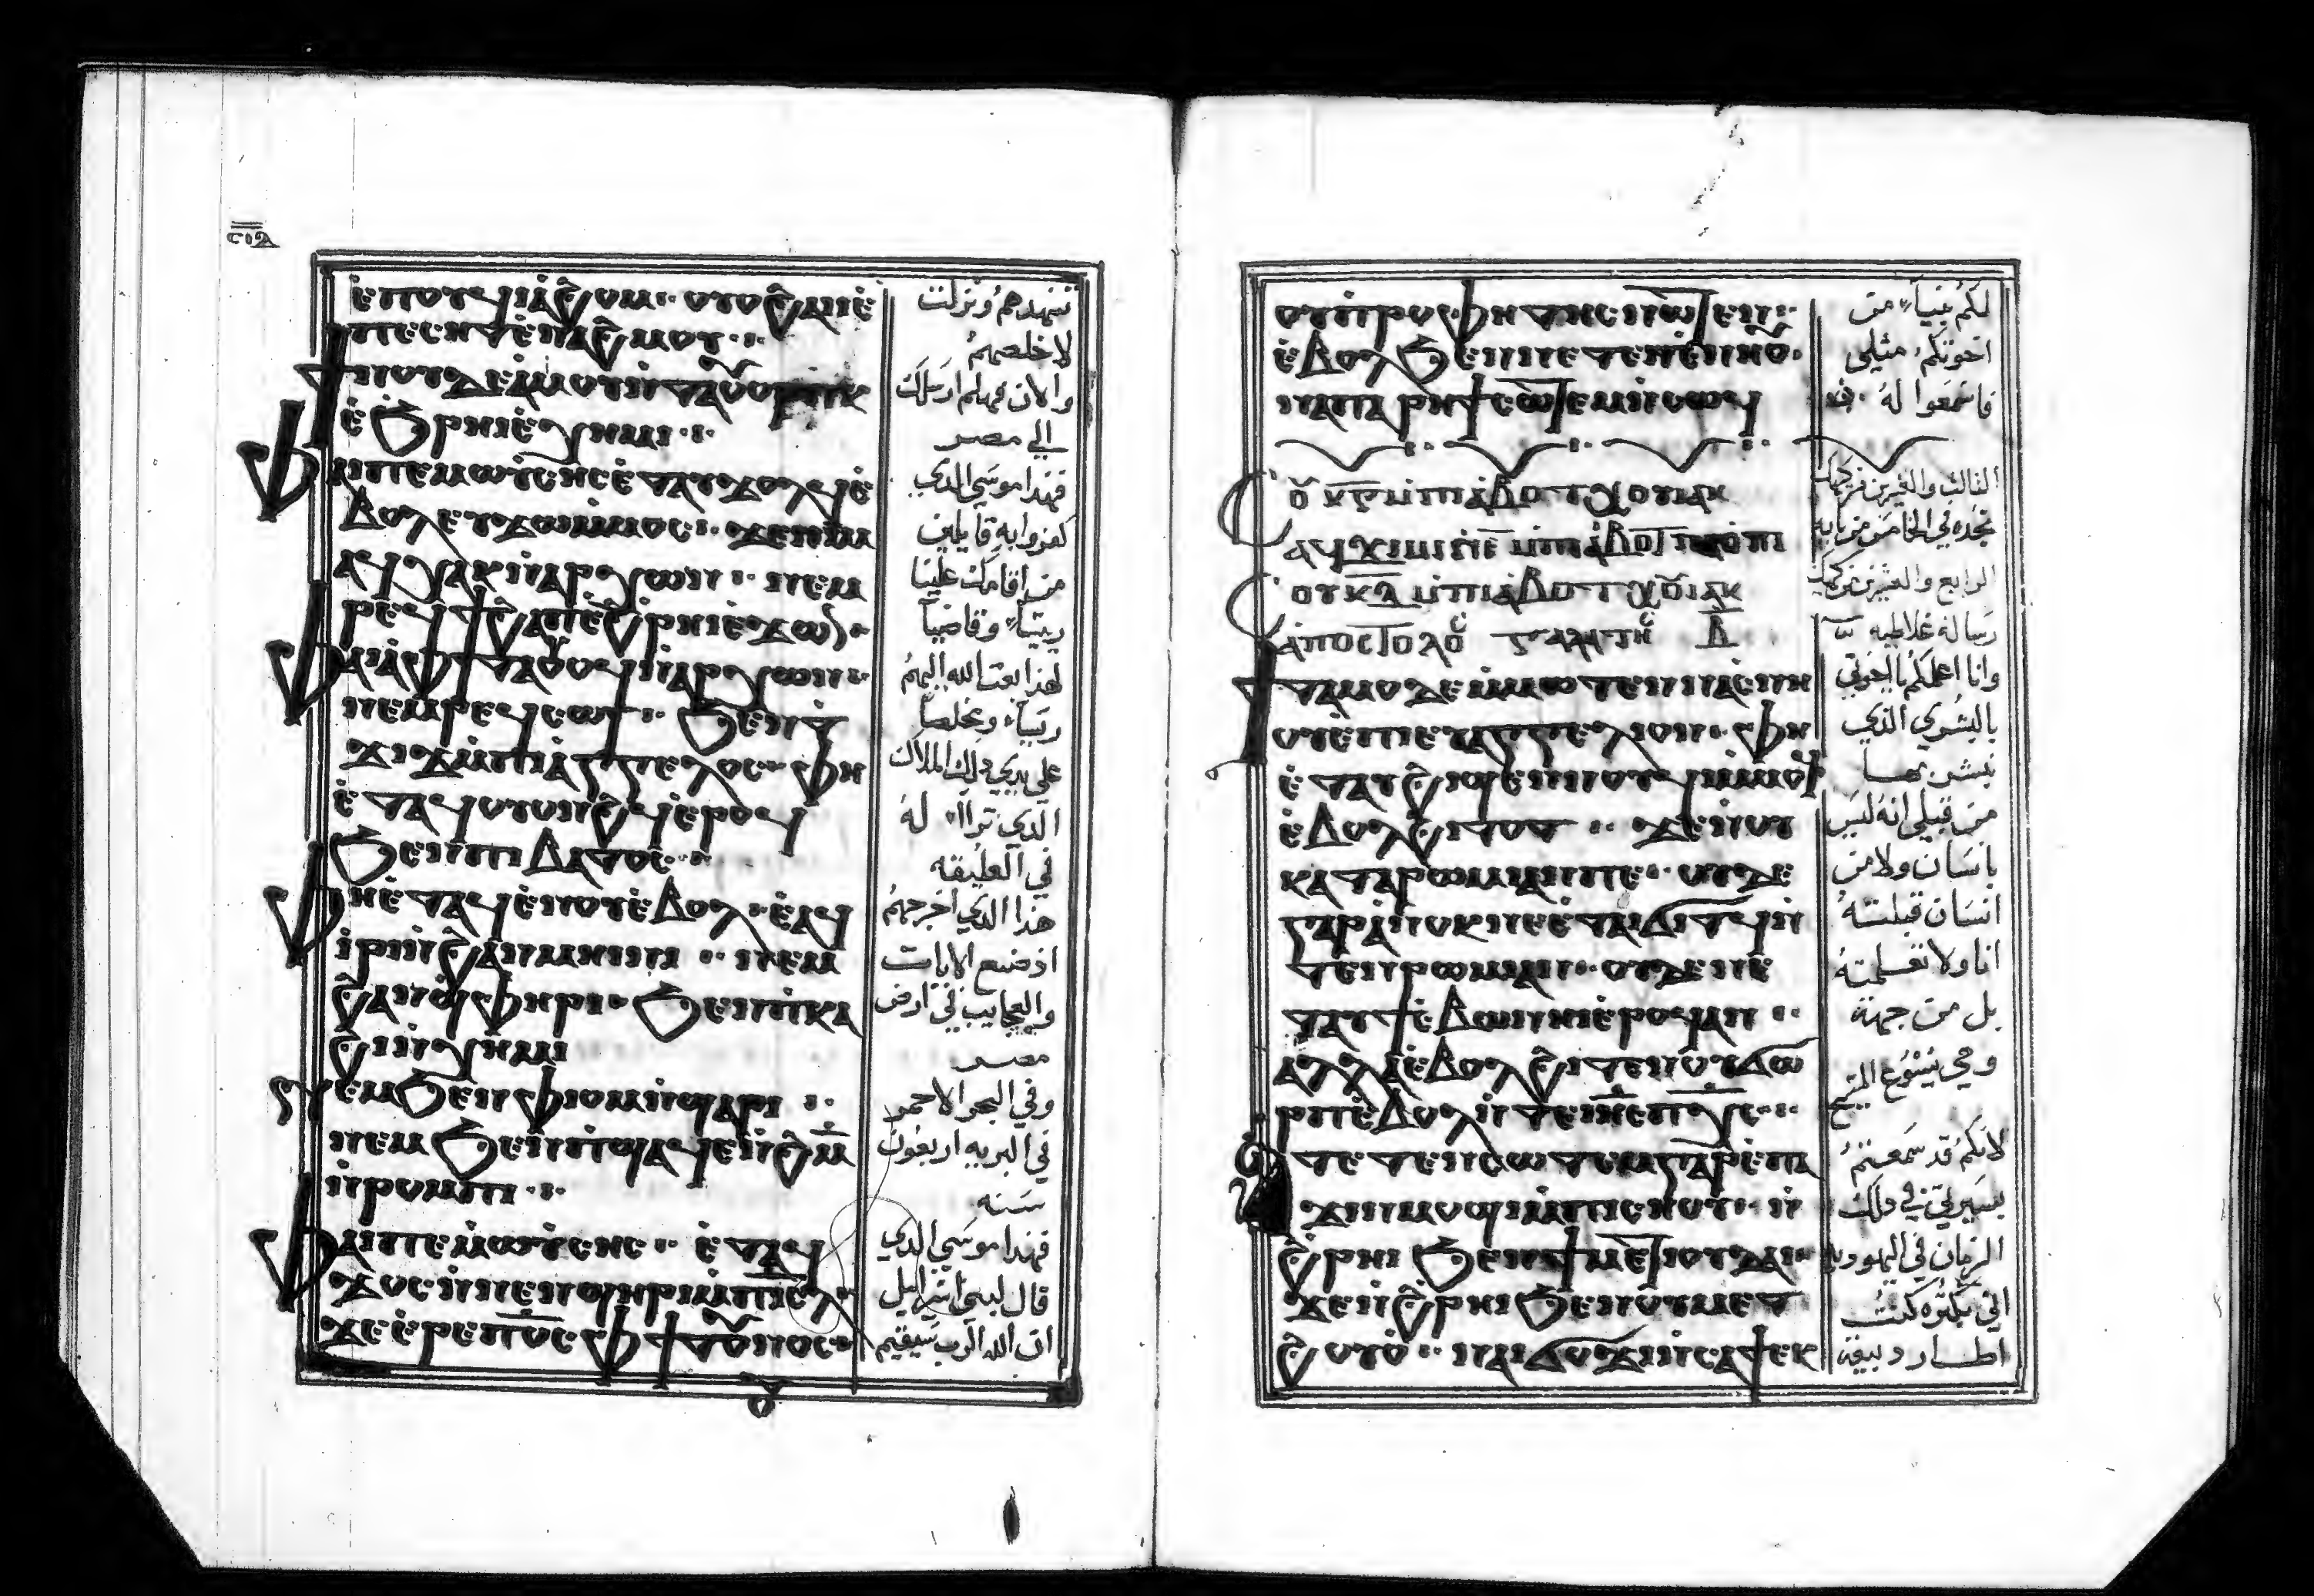 ⲥ̅ⲟ̅ⲇ̅
ⲉ̀ⲡⲟⲩϥⲓⲁ̀ϩⲟⲙ·· ⲟⲩⲟϩⲁⲓⲉ̀
ⲡⲉⲥⲏⲧⲉ̀ⲛⲁϩⲙⲟⲩ··
ϯⲛⲟⲩⲇⲉⲁ̀ⲙⲟⲩⲛ̀ⲧⲁⲟⲩⲟⲣⲡⲕ
ⲉ̀ϧⲣⲏⲓⲉ̀ⲭⲏⲙⲓ··
ⲫⲁⲓⲡⲉⲙⲱⲩ̀ⲥⲏⲥⲉ̀ⲧⲁⲩϫⲟⲗϥⲉ̀
ⲃⲟⲗⲉⲩϫⲱⲙ̀ⲙⲟⲥ·· ϫⲉⲛⲓⲙ
ⲁϥⲭⲁⲕⲛ̀ⲁⲣⲭⲱⲛ·· ⲛⲉⲙ
ⲣⲉϥϯϩⲁⲡⲉ̀ϩⲣⲏⲓⲉ̀ϫⲱⲛ·
ⲫⲁⲓⲁ̀ⲫϯⲧⲁⲟⲩⲟϥⲛ̀ⲁⲣⲭⲱⲛ··
ⲛⲉⲙⲣⲉϥⲥⲱϯ·· ϧⲉⲛⲧ̀
ϫⲓϫⲙ̀ⲡⲓⲁⲅⲅⲉⲗⲟⲥ·· ⲫⲏ
ⲉ̀ⲧⲁϥⲟⲩⲟⲛϩϥⲉ̀ⲣⲟϥ
ϧⲉⲛⲡⲓⲃⲁⲧⲟⲥ··
ⲫⲏⲉ̀ⲧⲁϥⲉ̀ⲛⲟⲩⲉ̀ⲃⲟⲗ·ⲉ̀ⲁϥ
ⲓ̀ⲣⲓⲛ̀ϩⲁⲛⲙⲏⲓⲛⲓ·· ⲛⲉⲙ
ϩⲁⲛϣ̀ⲫⲏⲣⲓ· ϧⲉⲛⲡ̀ⲕⲁ
ϩⲓⲛ̀ⲭⲏⲙⲓ
ⲛⲉⲙϧⲉⲛⲫ̀ⲓⲟⲙⲛ̀ϣⲁⲣⲓ··
ⲛⲉⲙϧⲉⲛⲡ̀ϣⲁϥⲉⲛ̀ⲙ̅
ⲛ̀ⲣⲟⲙⲡⲓ··
ⲫⲁⲓⲡⲉⲙⲱⲩ̀ⲥⲏⲥ·· ⲉ̀ⲧⲁϥ
ϫⲟⲥⲛ̀ⲛⲉⲛϣⲏⲣⲓⲙ̀ⲡⲓⲥ̅ⲗ̅
ϫⲉⲉ̀ⲣⲉⲡϭⲥ̅ⲫϯⲧⲟⲩⲛⲟⲥ·
تنهدهم ونزلت
لاخلصهم
والان فهلم ارسلك
الي مصر
فهذا موسي الدي
كفروا به قايلين
من اقامك علينا
ريسًا وقاضيًا
لهذا بعث الله اليهم
ريسًا ومخلصًا
علي يدي ذلك الملاك
الدي تراا له
في العليقه
هذا الدي اخرجهم
اذ صنع الايات
والعجايب في ارض
مصر
وفي البحر الاحمر
في البريه اربعون
سنه
فهذا موسي الدي
قال لبني اسراييل
ان الله الرب سيقيم
ⲟⲩⲡ̀ⲣⲟⲫⲏⲧⲏⲥⲛⲱⲧⲉⲛ··
ⲉ̀ⲃⲟⲗϧⲉⲛⲛⲉⲧⲉⲛⲥ̀ⲛⲏⲟⲩ·
ⲛ̀ⲡⲁⲣⲏϯⲥⲱⲧⲉⲙⲛ̀ⲥⲱϥ
ⲟⲩⲕ̅ⲅ̅ⲙ̀ⲡⲓⲁ̀ⲃⲟⲧⲭⲟⲓⲁⲕ
ⲁϥⲭⲓⲙⲓⲛ̀ⲉ̅ⲙ̀ⲡⲓⲁ̀ⲃⲟⲧⲡⲁⲟ̀ⲡⲓ
ⲟⲩⲕ̅ⲇ̅ⲙ̀ⲡⲓⲁ̀ⲃⲟⲧⲭⲟⲓⲁⲕ
ⲁ̀ⲡⲟⲥⲧⲟⲗⲟⲥ ⲅⲁⲗⲁⲧⲏⲥ ⲁ̅
ϯⲧⲁⲙⲟⲇⲉⲙ̀ⲙⲱⲧⲉⲛⲛⲁⲥ̀ⲛⲏ
ⲟⲩⲉ̀ⲡⲓⲉⲩⲁⲅⲅⲉⲗⲓⲟⲛ·ⲫⲏ
ⲉ̀ⲧⲁⲩϩⲓϣⲉⲛⲛⲟⲩϥⲓⲙ̀ⲙⲟϥ
ⲉ̀ⲃⲟⲗϩⲓⲧⲟⲧ·· ϫⲉⲛⲟⲩ
ⲕⲁⲧⲁⲣⲱⲙⲓⲁⲛⲡⲉ·· ⲟⲩⲇⲉ
ⲅⲁⲣⲁ̀ⲛⲟⲕⲛⲉⲉ̀ⲧⲁⲓϭⲓⲧϥⲛ̀
ⲧⲉⲛⲣⲱⲙⲓⲁⲛ··ⲟⲩⲇⲉⲛⲉ̀
ⲧⲁⲩϯⲥ̀ⲃⲱⲛⲏⲓⲉ̀ⲣⲟϥⲁⲛ··
ⲁⲗⲗⲁⲉ̀ⲃⲟⲗϩⲓⲧⲉⲛⲟⲩϭⲱ
ⲣⲡⲉ̀ⲃⲟⲗⲛ̀ⲧⲉⲓⲏ̅ⲥ̅ⲡⲭ̅ⲥ̅··
ⲁⲧⲉⲧⲉⲛⲥⲱⲧⲉⲙⲅⲁⲣⲉ̀ⲡⲁ
ϫⲓⲛⲙⲟϣⲓⲙ̀ⲡⲓⲥⲏⲟⲩ··ⲛ̀
ϩ̀ⲣⲏⲓϧⲉⲛϯⲙⲉⲧⲓⲟⲩⲇⲁⲓ··
ϫⲉⲛ̀ϩⲣⲏⲓϧⲉⲛⲟⲩⲙⲉⲧ
ϩⲟⲩⲟ̀·· ⲛⲁⲓϭⲟϫⲓⲛ̀ⲥⲁϯⲉⲕ
لكم نبيًا من
اخوتكم مثلي
فاسمعوا له
الثالث والعشرين من كيهك
تجده في الخامس من بابه
الرابع والعشرين من كيهك
رسالة غلاطيه
وانا اعلمكم يا اخوتي
بالبشري الدي
نبشر بها
من قبلي انه ليس
بانسان ولا من
انسان قبلته
انا ولا تعلمته
بل من جهة
وحي يسوع المسيح
لانكم قد سمعتم
بسيرتي في ذلك
الزمان في اليهوديه
اني بكثره كنت
اطارد بيعة